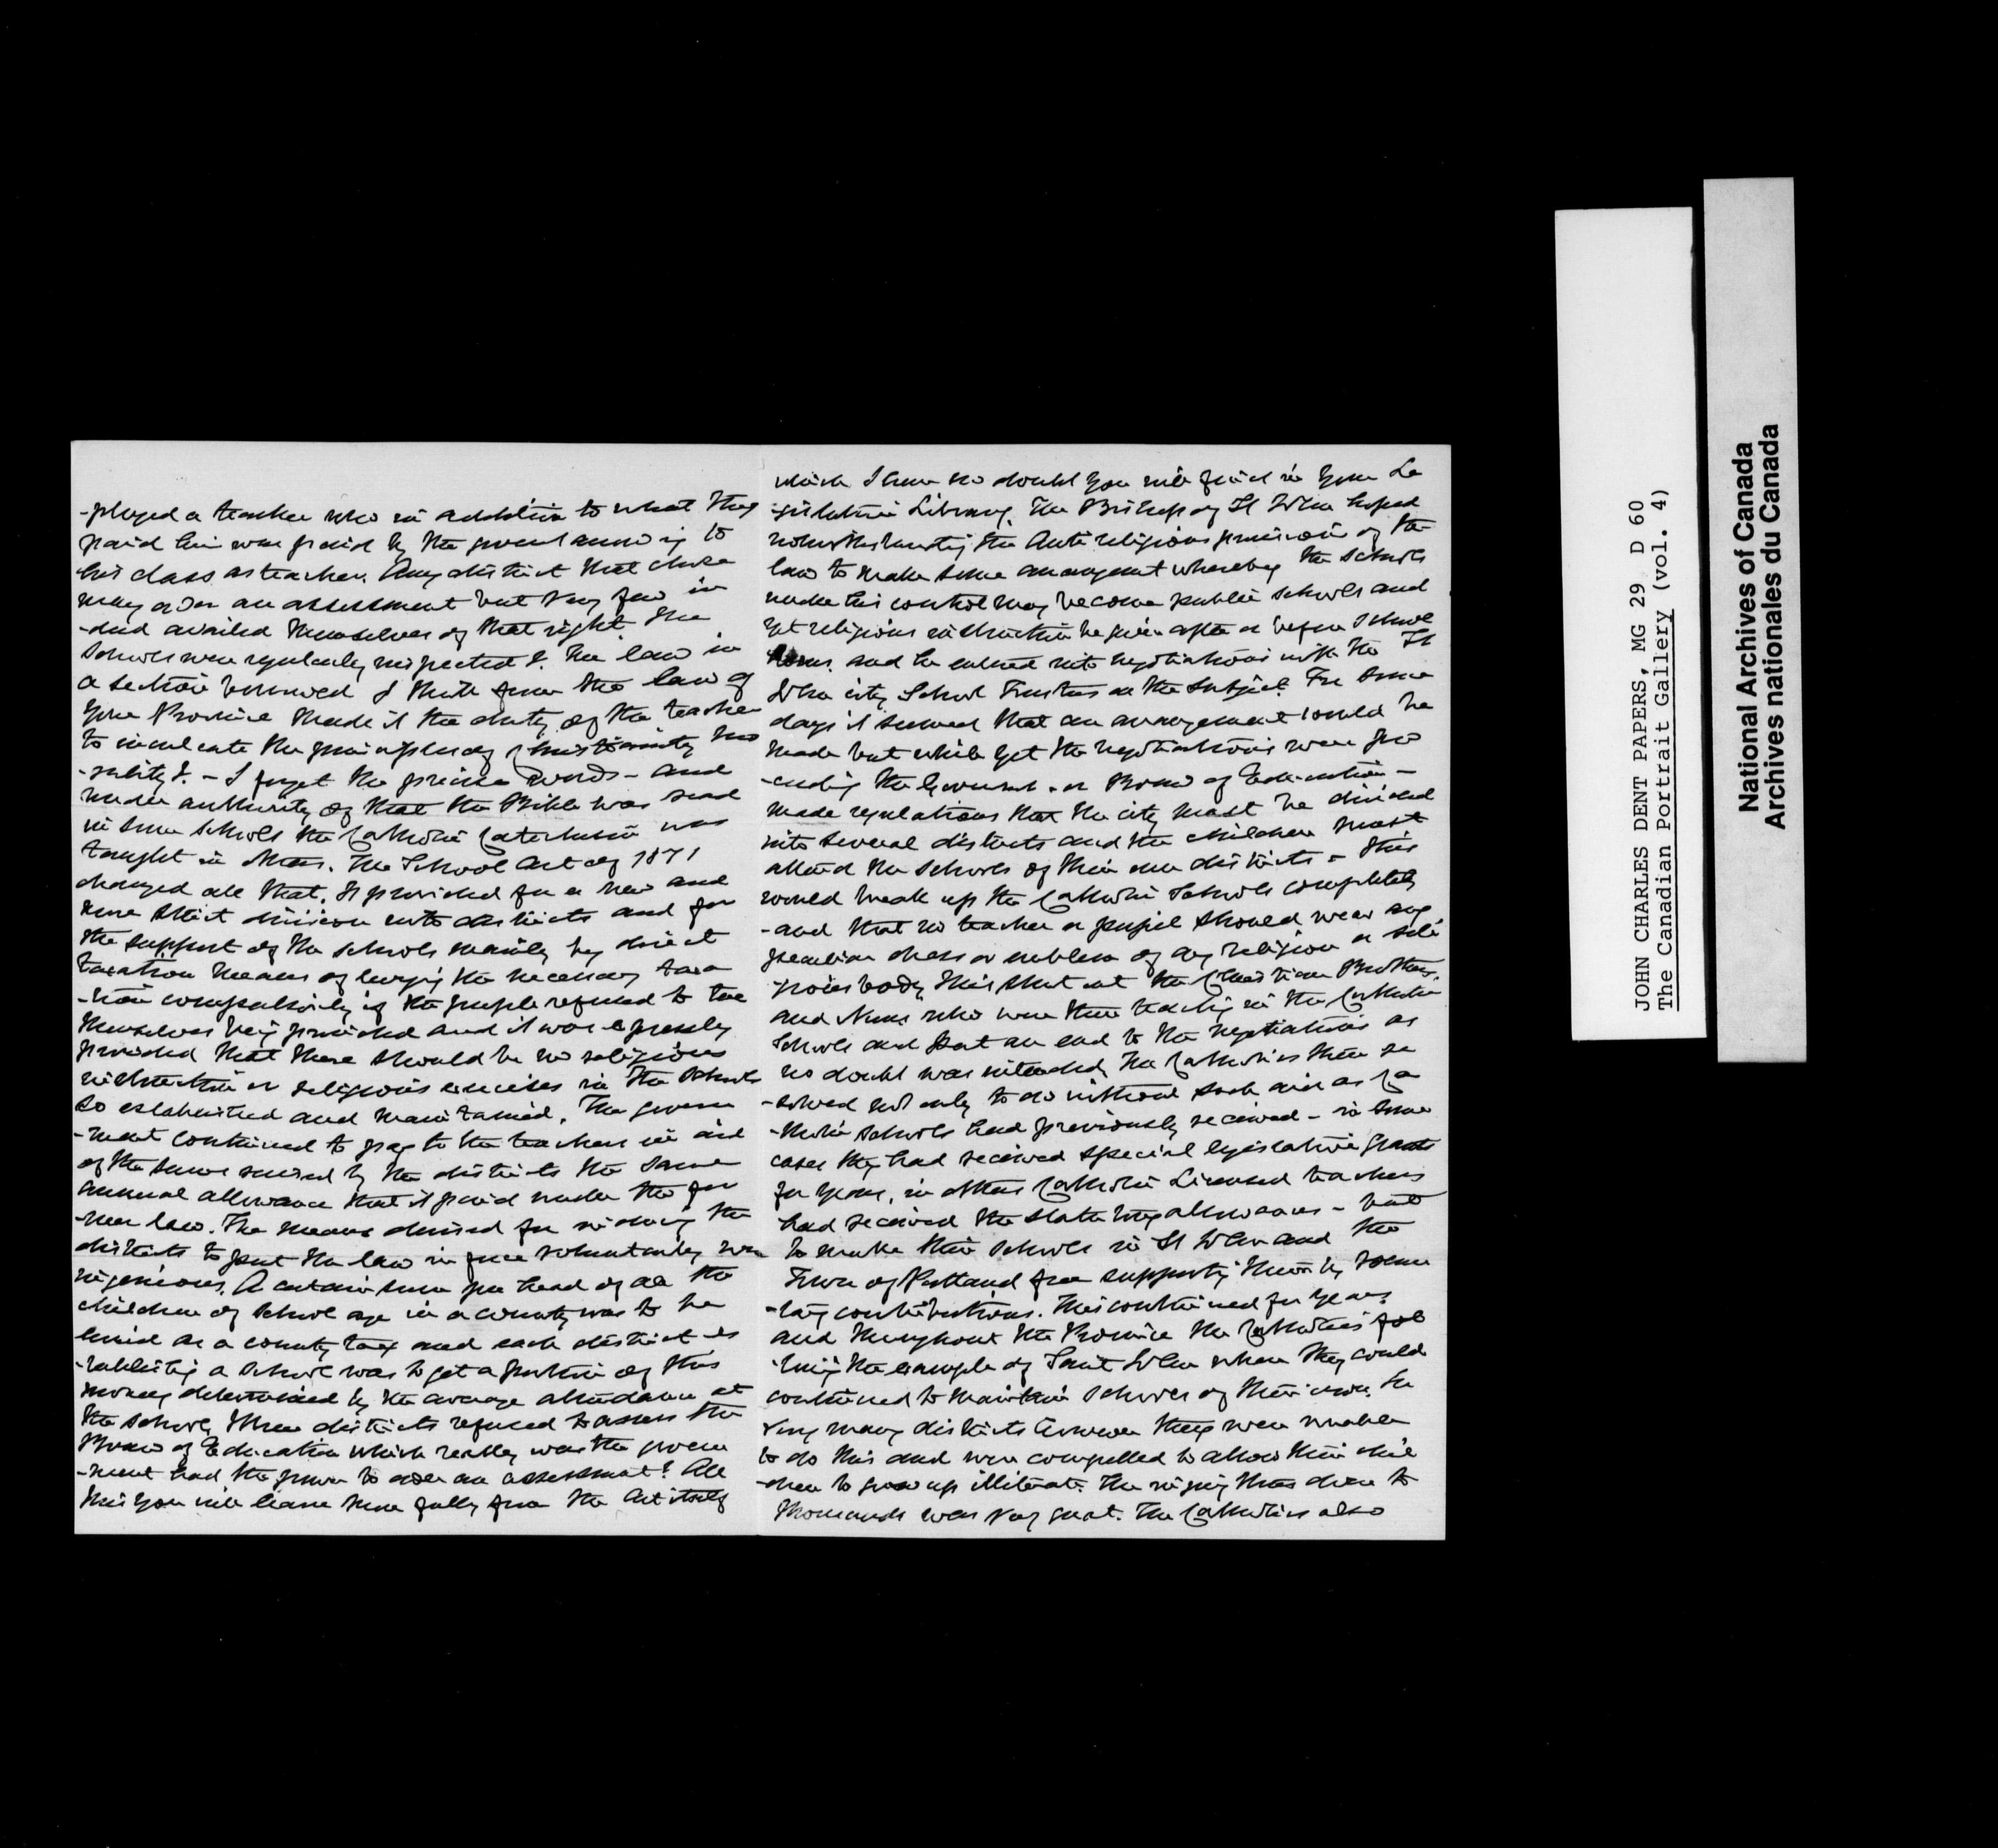 -ployed a teacher who in addition to what they
paid him was paid by the government according to
his class as teacher. Any district that chose
may order an assessment but very few in
-deed availed themselves of that right. The
Schools were regularly inspected &. The law in
a section borrowed I think from the law of
your Province made it the duty of the teacher
to inculcate the principles of Christianity mo
-rality &. – I forget the precise words – and
under authority of that the Bible was read
in some schools the Catholic Catechism was
taught in others. The School Act of 1871
changed all that. It provided for a new and
more strict division into districts and for
the support of the schools mainly by direct
taxation means of levying the necessary taxa
-tion compulsorily if the people refused to tax
themselves being provided and it was expressly
provided that there should be no religious
instruction or religious exercises in the schools
so established and maintained. The govern
-ment continued to pay to the teachers in aid
of the sums raised by the districts the same
annual allowance that it paid under the for
-mer law. The means devised for inducing the
districts to put the law in force voluntarily was
ingenious. A certain sum per head of all the
children of school age in a county was to be
levied as a county tax and each district es
-tablishing a school was to get a portion of this
money determined by the average attendance at
the school. Where districts refused to assess the
Board of Education which really was the govern
-ment had the power to order an assessment. All
this you will learn more fully from the Act itself
which I have no doubt you will find in your Le
-gislative Library. The Bishop of St John hoped
notwithstanding the Anti religious provision of the
law to make some arrangement whereby the schools
under his control may become public schools and
yet religious instruction be given after or before school
hours. and he entered into negotiations with the St
John city School Trustees on the subject. For some
days it seemed that an arrangement could be
made but while yet the negotiations were pro
-ceeding the Government – or Board of Education –
made regulations that the city must be divided
into several districts and the children must
attend the schools of their own districts – this
would break up the Catholic Schools completely
– and that no teacher or pupil should wear any
peculiar dress or emblem of any religion or reli
-gious body. This shut out the Christian Brothers
and Nuns who were then teaching in the Catholic
Schools and put an end to the negotiations as
no doubt was intended. The Catholics then re
-solved not only to do without such aid as Ca
-tholic schools had previously received – in some
cases they had received special legislative grants
for years, in others Catholic Licensed teachers
had received the statutory allowances – but
to make their schools in St John and the
Town of Portland free supporting them by volun
-tary contributions. This continued for years
and throughout the Province the Catholics fol
-lowing the example of Saint John where they could
continued to maintain schools of their own. In
very many districts however they were unable
to do this and were compelled to allow their chil
-dren to grow up illiterate. The injury thus done to
thousands was very great. The Catholics also
JOHN CHARLES DENT PAPERS, MG 29 D 60
The Canadian Portrait Gallery (vol. 4)
National Archives of Canada
Archives nationales du Canada